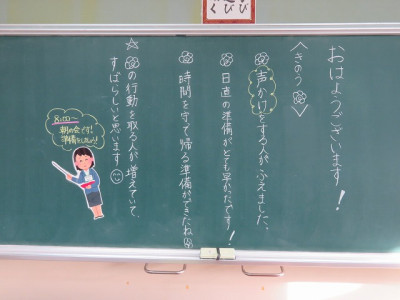 おはようございます!
〈きのう〉
声かけをする人がふえました。
日直の準備がとても早かったです!
時間を守て帰る準備ができたね
☆の行動を取る人が増えていて、
すばらしいと思います
8:00〜
朝の会です!
準備をしましょう!